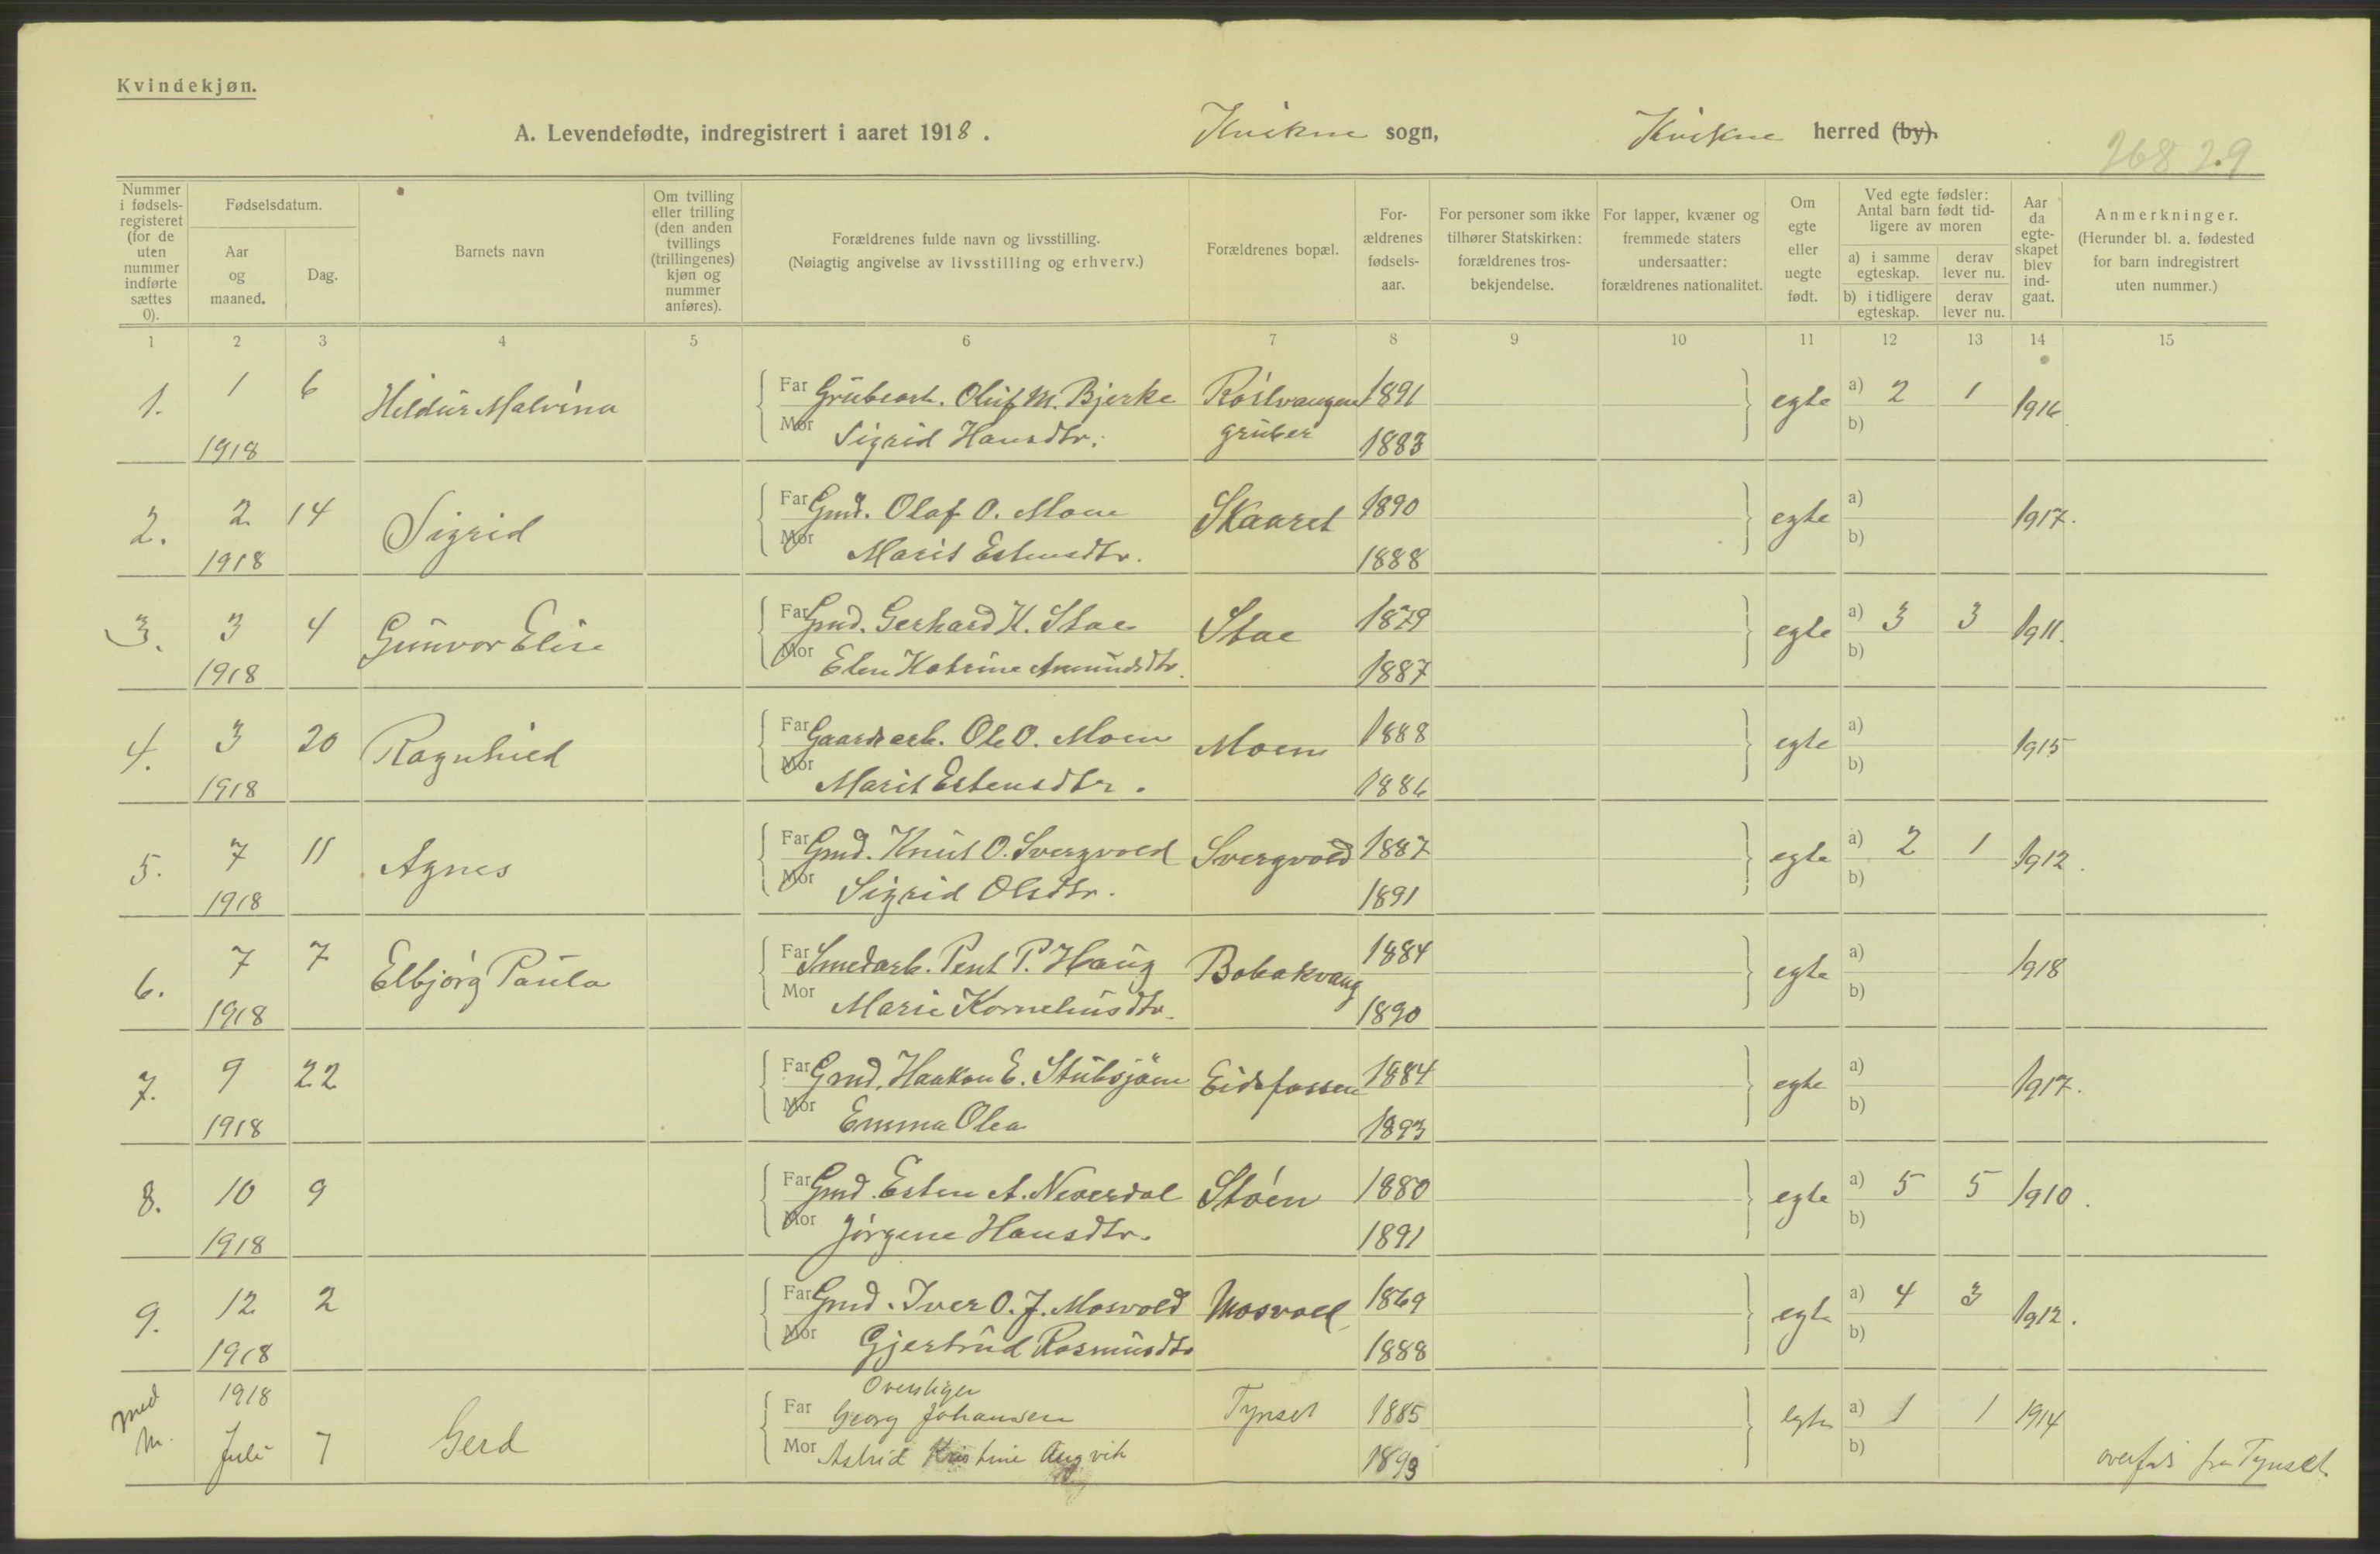 Kvindekjøn.
A. Levendefødte, indregistrert i aaret 1918. Kvikne sogn, Kvikne herred (by).
268 29
Nummer i fødsels-registeret (for de uten nummer indførte sættes 0).
Fødselsdatum.
Aar og maaned.
Dag.
Barnets navn
Om tvilling eller trilling (den anden tvillings (trillingenes) kjøn og nummer anføres).
Forældrenes fulde navn og livsstilling.
(Nøiagtig angivelse av livsstilling og erhverv.)
Forældrenes bopæl.
For-ældrenes fødsels-aar.
For personer som ikke tilhører Statskirken: forældrenes tros-bekjendelse.
For lapper, kvæner og fremmede staters undersaatter: forældrenes nationalitet.
Om egte eller uegte født.
Ved egte fødsler: Antal barn født tid-ligere av moren
a) i samme egteskap.
derav lever nu.
b) i tidligere egteskap.
derav lever nu.
Aar da egte-skapet blev ind-gaat.
Anmerkninger.
(Herunder bl. a. fødested for barn indregistrert uten nummer.)
1 2 3 4 5 6 7 8 9 10 11 12 13 14 15
1. 1 6 Hildur Malvina Far Grubearb. Oluf M. Bjerke Røstvangen 1891 egte a) 2 1 1916
1918 Mor Sigrid Hansdtr. gruber 1883 b)
2. 2 14 Sigrid Far Gmd. Olaf O. Moen Skaaret 1890 egte a) 1917.
1918 Mor Marit Estensdtr. 1888 b)
3. 3 4 Gunvor Elise Far Gmd. Gerhard K. Stae Stae 1879 egte a) 3 3 1911.
1918 Mor Elen Katrine Amundsdtr. 1887 b)
4. 3 20 Ragnhild Far Gaardsarb. Ole O. Moen Moen 1888 egte a) 1915
1918 Mor Marit Estensdtr. 1886 b)
5. 7 11 Agnes Far Gmd. Knut O. Svergvold Svergvold 1887 egte a) 2 1 1912.
1918 Mor Sigrid Olsdtr. 1891 b)
6. 7 7 Elbjørg Paula Far Smedarb. Pent P. Haug Bobakvang 1884 egte a) 1918
1918 Mor Marie Korneliusdtr. 1890 b)
7. 9 22 Far Gmd. Haakon E. Stubsjøen Eidsfossen 1884 egte a) 1917.
1918 Mor Emma Olea 1893 b)
8. 10 9 Far Gmd. Esten A. Neverdal Støen 1880 egte a) 5 5 1910.
1918 Mor Jørgine Hansdtr. 1891 b)
9. 12 2 Far Gmd. Iver O. J. Mosvold Mosvold 1869 egte a) 4 3 1912.
1918 Mor Gjertrud Rasmusdtr 1888 b)
med m. 1918 Overstiger
Gerd Far Georg Johansen Tynset 1885 egte a) 1 1 1914
Juli 7 Mor Astrid Kristine Angvik 1893 b) overført fra Tynset